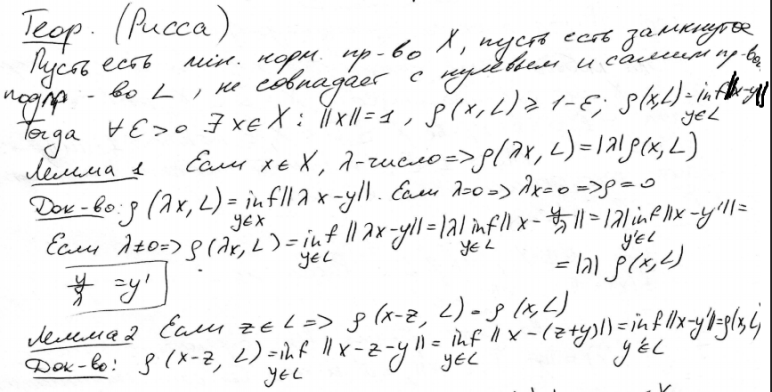 Теор. (Рисса)
Пусть есть лин. норм. пр-во X, пусть есть замкнутое
подпр-во L, не совпадает с нулевым и самим пр-вом
Тогда ∀ε>0 ∃x∈X: ||x||=1, ρ(x,L)≥1-ε; ρ(x,L)=inf||x-y||
y∈L
Лемма 1 Если x∈X, λ-число => ρ(λx,L)=|λ|ρ(x,L)
Док-во: ρ(λx,L)=inf||λx-y||. Если λ=0 => λx=0 => ρ=0
y∈X
Если λ≠0 => ρ(λx,L)=inf||λx-y||=|λ|inf||x-y/λ||=|λ|inf||x-y'||=
y∈L y∈L y'∈L
=|λ|ρ(x,L)
y/λ = y'
Лемма 2 Если z∈L => ρ(x-z,L)=ρ(x,L)
Док-во: ρ(x-z,L)=inf||x-z-y||=inf||x-(z+y)||=inf||x-y'||=ρ(x,L)
y∈L y∈L y'∈L